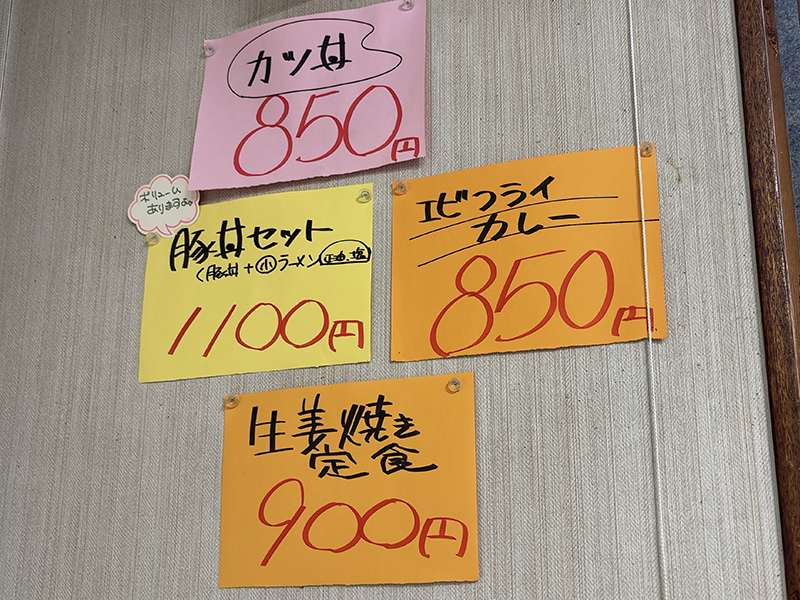 カツ丼
850円
ボリューム
ありますよ。
豚丼セット
(豚丼+小ラーメン 正油、塩)
1100円
エビフライ
カレー
850円
生姜焼き
定食
900円